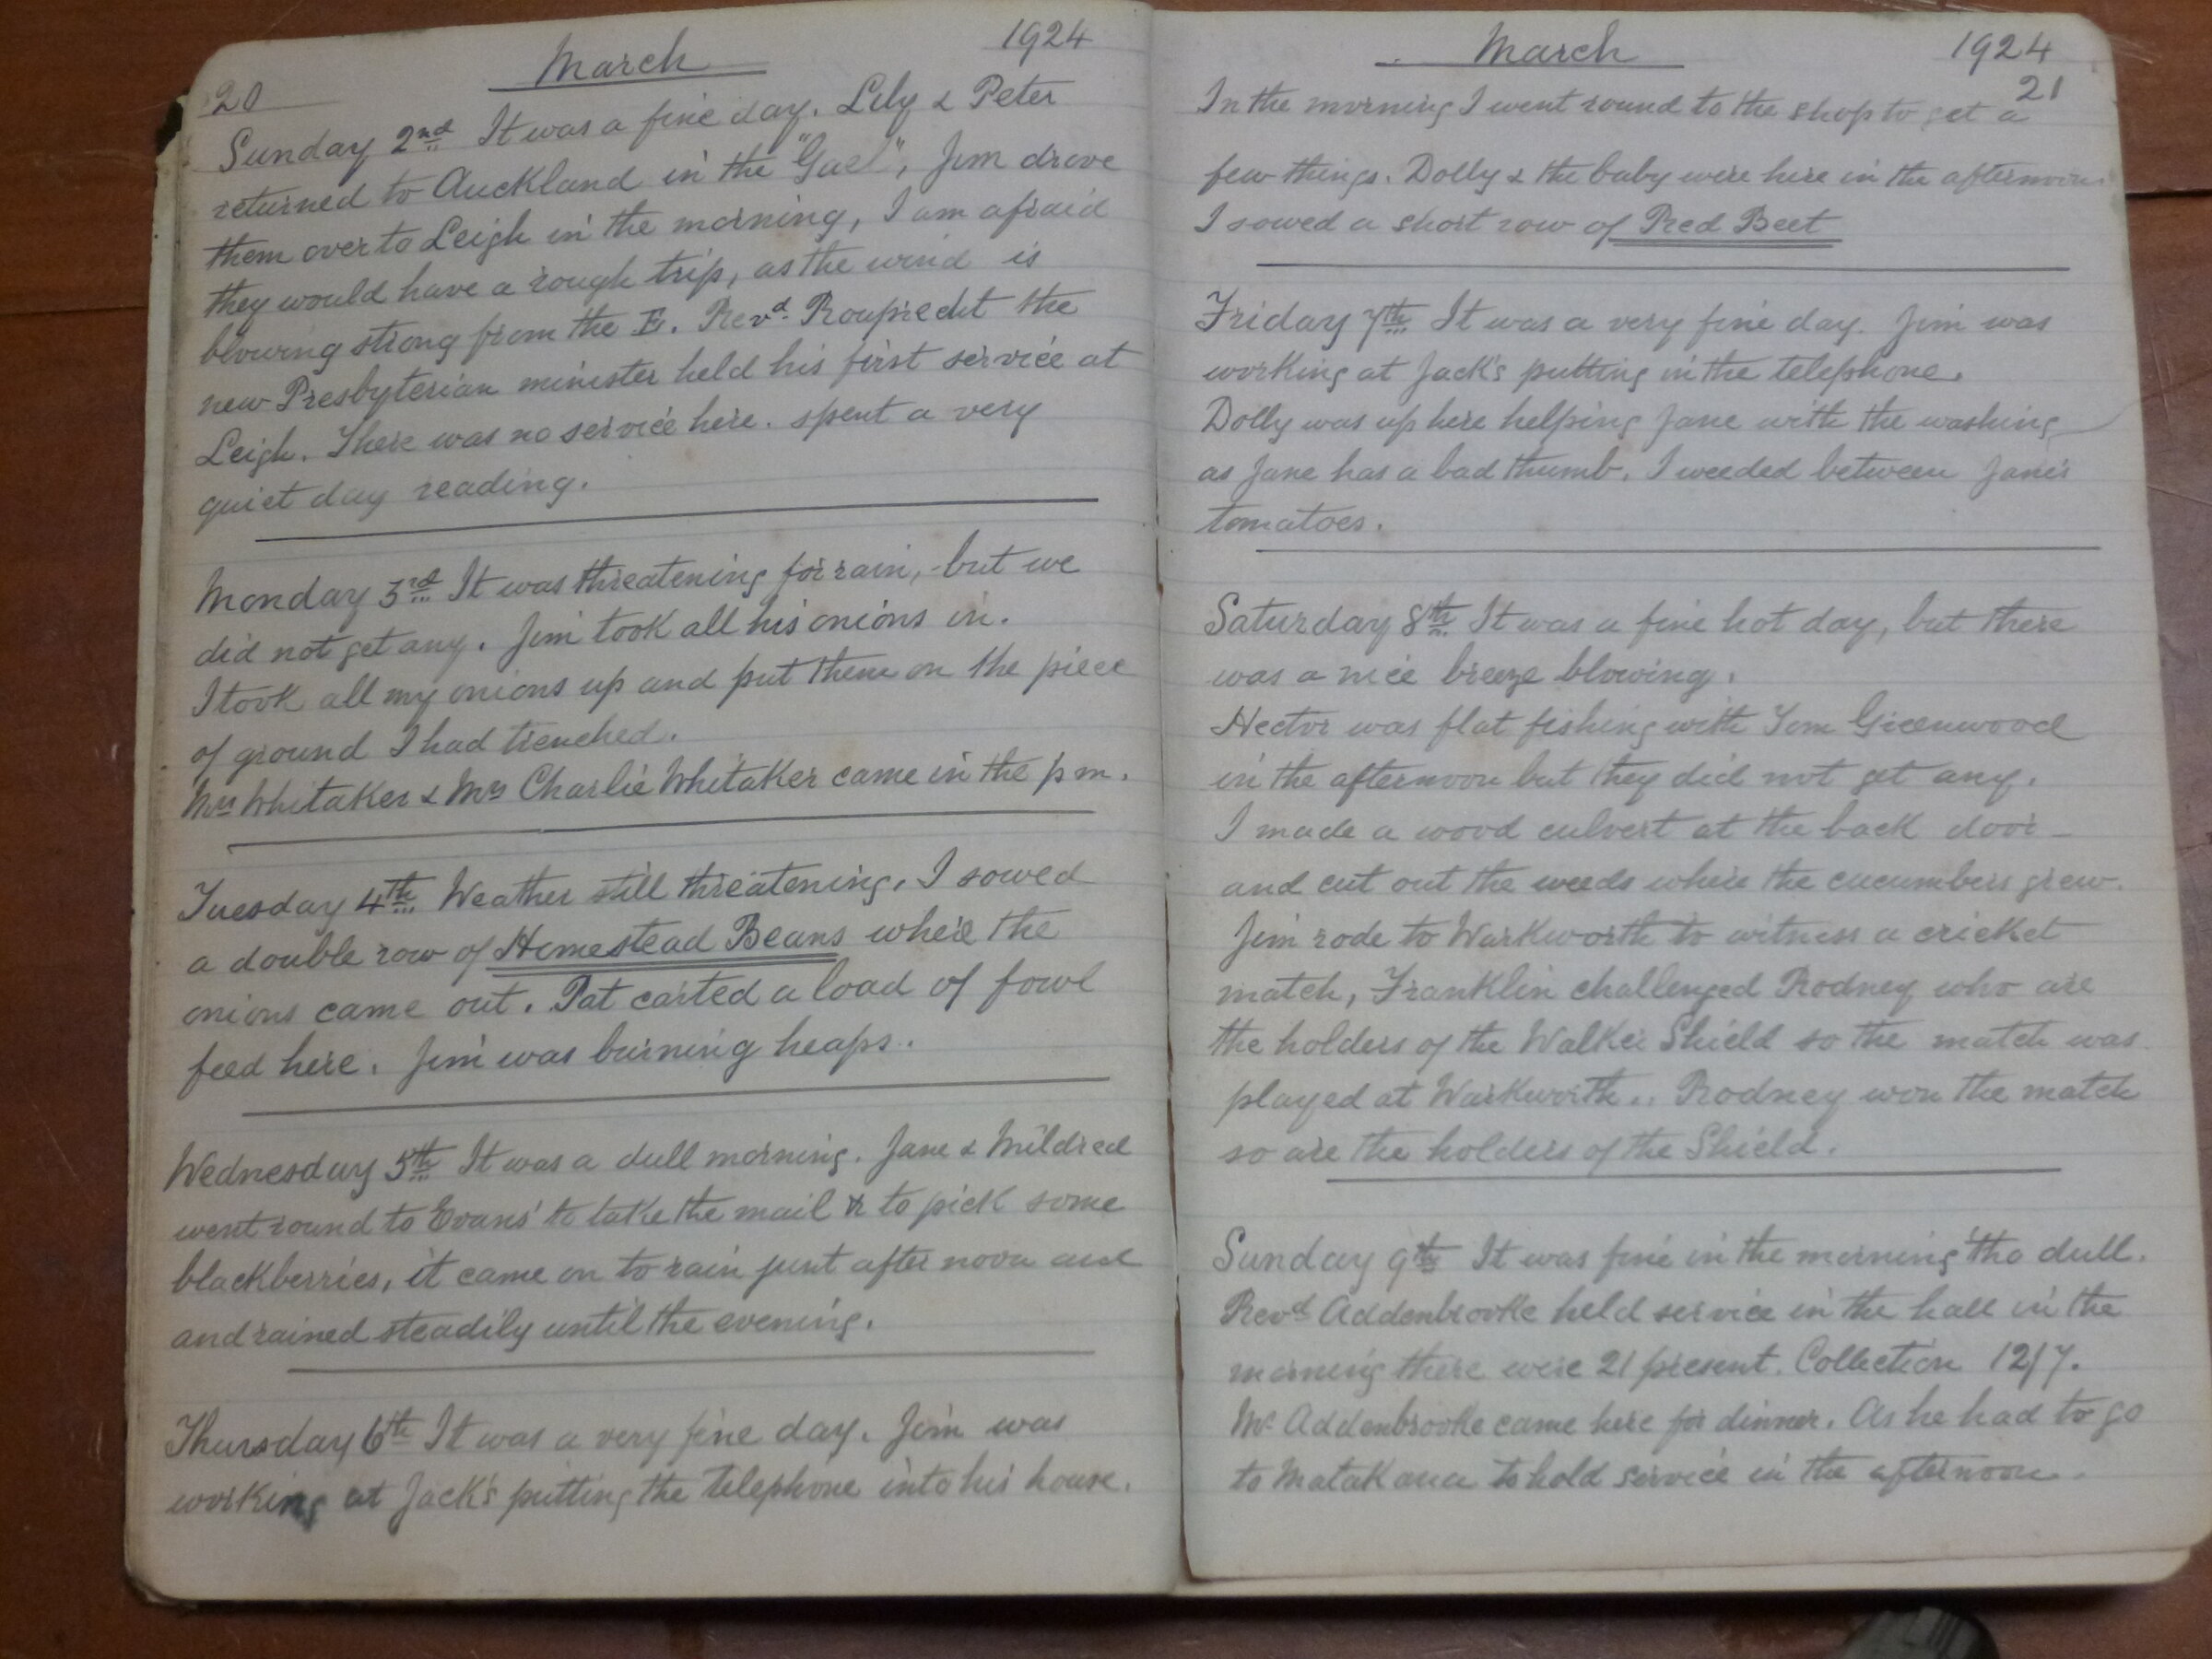 March 1924
20
Sunday 2nd It was a fine day. Lily & Peter
returned to Auckland in the "Gael", Jim drove
them over to Leigh in the morning, I am afraid
they would have a rough trip, as the wind is
blowing strong from the E. Revd. Rouprecht the
new Presbyterian minister held his first service at
Leigh. There was no service here. spent a very
quiet day reading.
Monday 3rd It was threatening for rain, but we
did not get any. Jim took all his onions in.
I took all my onions up and put them on the piece
of ground I had trenched.
Mrs Whitaker & Mrs Charlie Whitaker came in the p m.
Tuesday 4th Weather still threatening. I sowed
a double row of Homestead Beans where the
onions came out. Pat carted a load of fowl
feed here. Jim was burning heaps.
Wednesday 5th It was a dull morning. Jane & Mildred
went round to Evans' to take the mail & to pick some
blackberries, it came on to rain just after noon and
and rained steadily until the evening.
Thursday 6th It was a very fine day. Jim was
working at Jack's putting the telephone into his house.
March 1924
21
In the morning I went round to the shop to get a
few things. Dolly & the baby were here in the afternoon
I sowed a short row of Red Beet
Friday 7th It was a very fine day. Jim was
working at Jack's putting in the telephone.
Dolly was up here helping Jane with the washing
as Jane has a bad thumb. I weeded between Jane's
tomatoes.
Saturday 8th It was a fine hot day, but there
was a nice breeze blowing.
Hector was flat fishing with Tom Greenwood
in the afternoon but they did not get any.
I made a wood culvert at the back door
and cut out the weeds where the cucumbers grew.
Jim rode to Warkworth to witness a cricket
match, Franklin challenged Rodney who are
the holders of the Walker Shield so the match was
played at Warkworth.. Rodney won the match
so are the holders of the Shield.
Sunday 9th It was fine in the morning tho dull.
Revd Addenbrooke held service in the hall in the
morning there were 21 present. Collection 12/7.
Mr Addenbrooke came here for dinner. As he had to go
to Matakana to hold service in the afternoon.